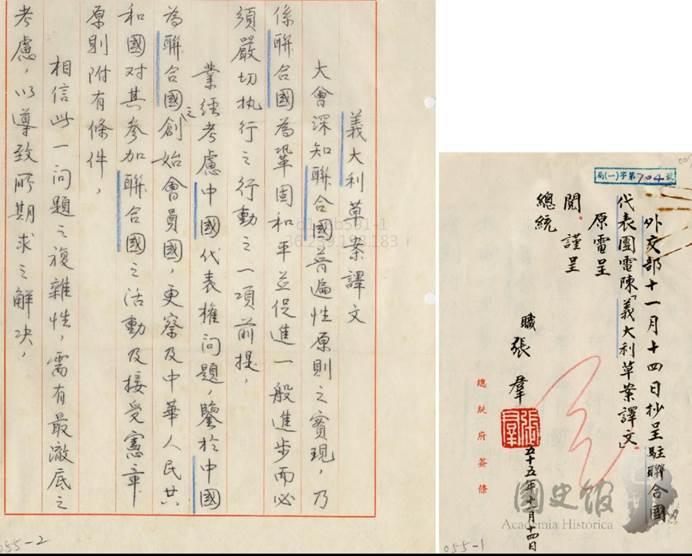 義大利草案譯文
大會深知聯合國普遍性原則之實現，乃
係聯合國為鞏固和平並促進一般進步而必
須嚴切执行之行動之一項前提，
業經考慮中國代表權问題，鑒於中國
為聯合國之創始會員國，更察及中华人民共
和國对其参加聯合國之活動及接受憲章
原則附有條件，
相信此一问題之複雜性，需有最澈底之
考慮，以導致所期求之解决，
055-2
局(一)字第704號
外交部十一月十四日抄呈駐聯合國
代表團電陳「義大利草案譯文」
原電呈
閱 謹呈
總統
職 張羣
張羣
五十五年十一月十四日
總統府簽條
國史館
Academia Historica
055-1